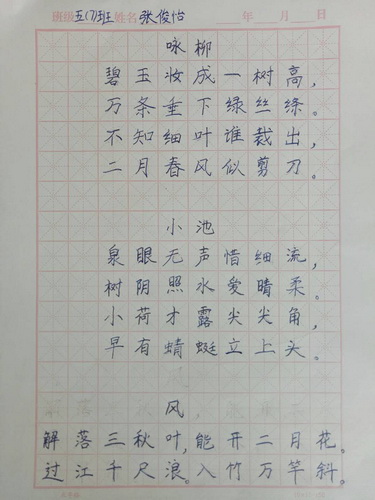 班级五(7)班姓名张俊怡 年 月 日
咏柳
碧玉妆成一树高，
万条垂下绿丝绦。
不知细叶谁裁出，
二月春风似剪刀。
小池
泉眼无声惜细流，
树阴照水爱晴柔。
小荷才露尖尖角，
早有蜻蜓立上头。
风
解落三秋叶，能开二月花。
过江千尺浪。入竹万竿斜。